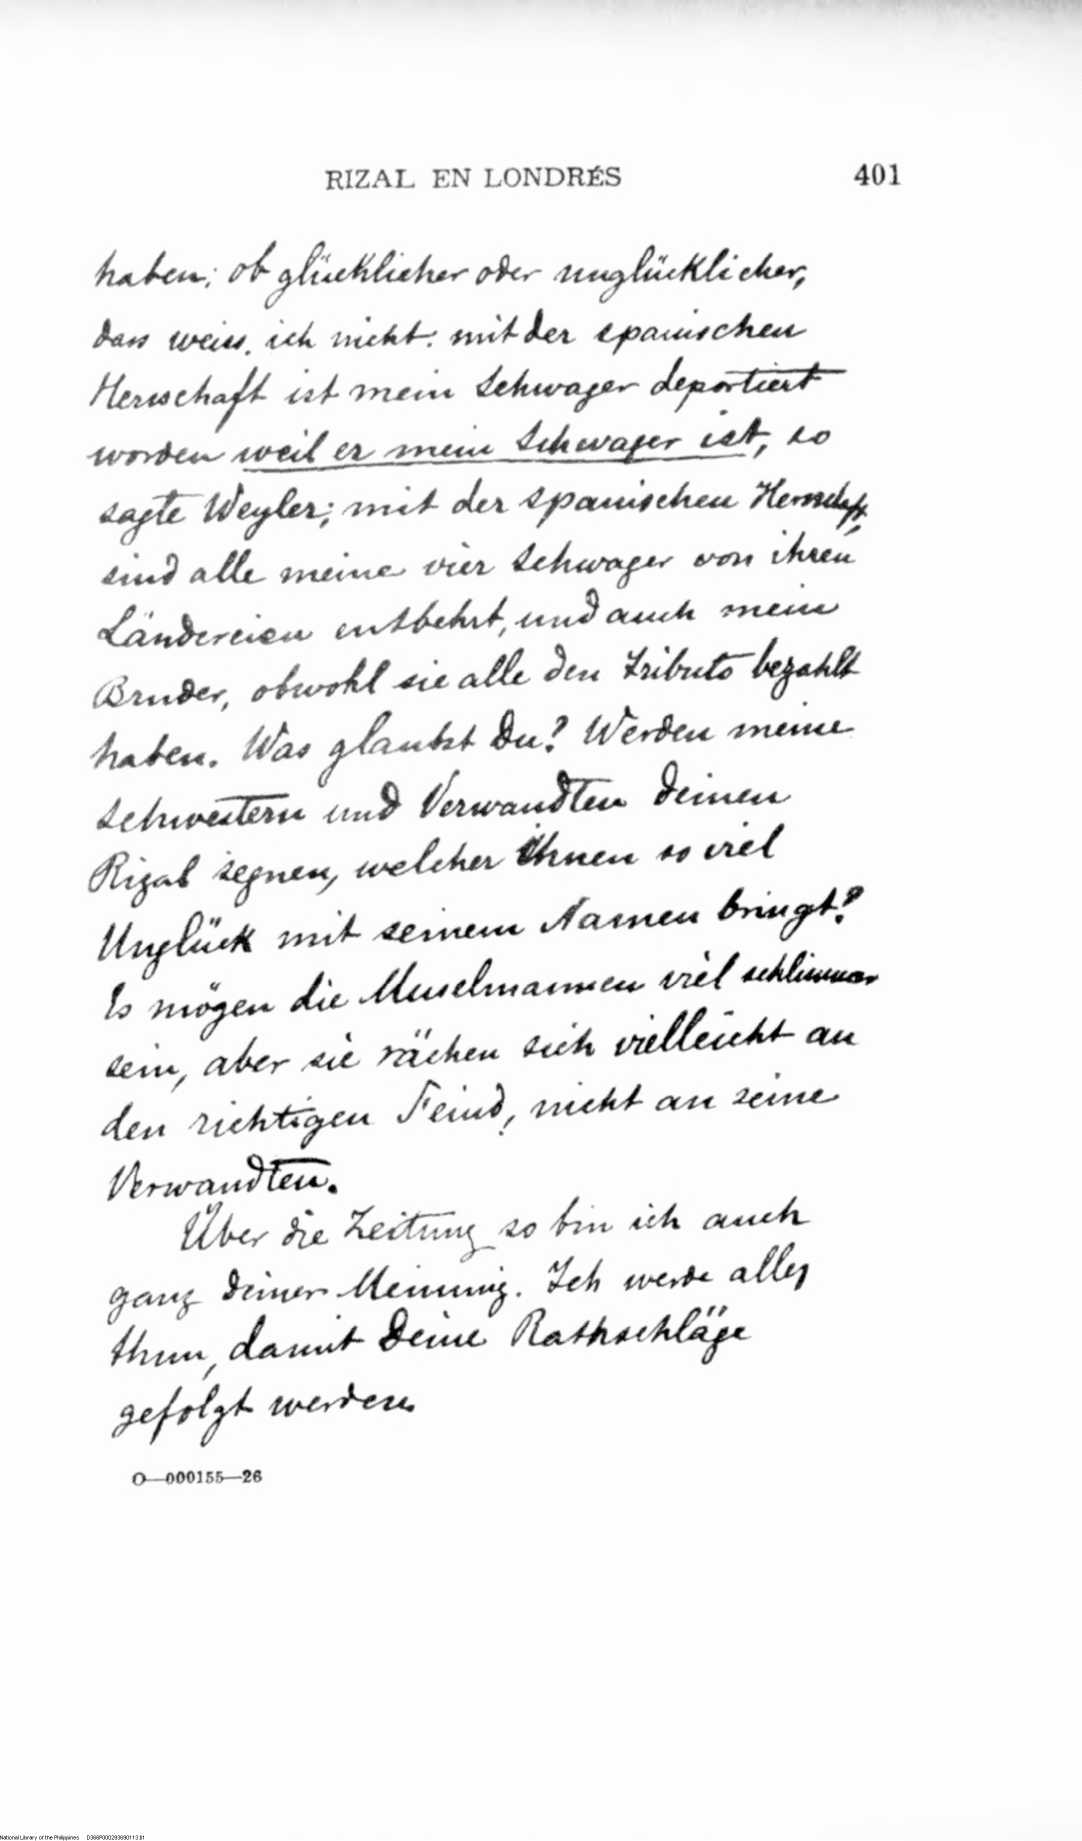 RIZAL EN LONDRÉS 401
haben; ob glücklicher oder unglücklicher,
dass weiss, ich nicht: mit der spanischen
Herrschaft ist mein Schwager deportiert
worden weil er mein Schwager ist, so
sagte Weyler; mit der spanischen Herrschaft,
sind alle meine vier Schwager von ihren
Ländereien entbehrt, und auch mein
Bruder, obwohl sie alle den Tributo bezahlt
haben. Was glaubst Du? Werden meine
Schwestern und Verwandten deinen
Rizal segnen, welcher ihnen so viel
Unglück mit seinem Namen bringt?
Es mögen die Muselmannen viel schlimmer
sein, aber sie rächen sich vielleicht an
den richtigen Feind, nicht an seine
Verwandten.
Über die Zeitung so bin ich auch
ganz deiner Meinung. Ich werde alles
thun, damit Deine Rathschläge
gefolgt werden.
O—000155—26
National Library of the Philippines